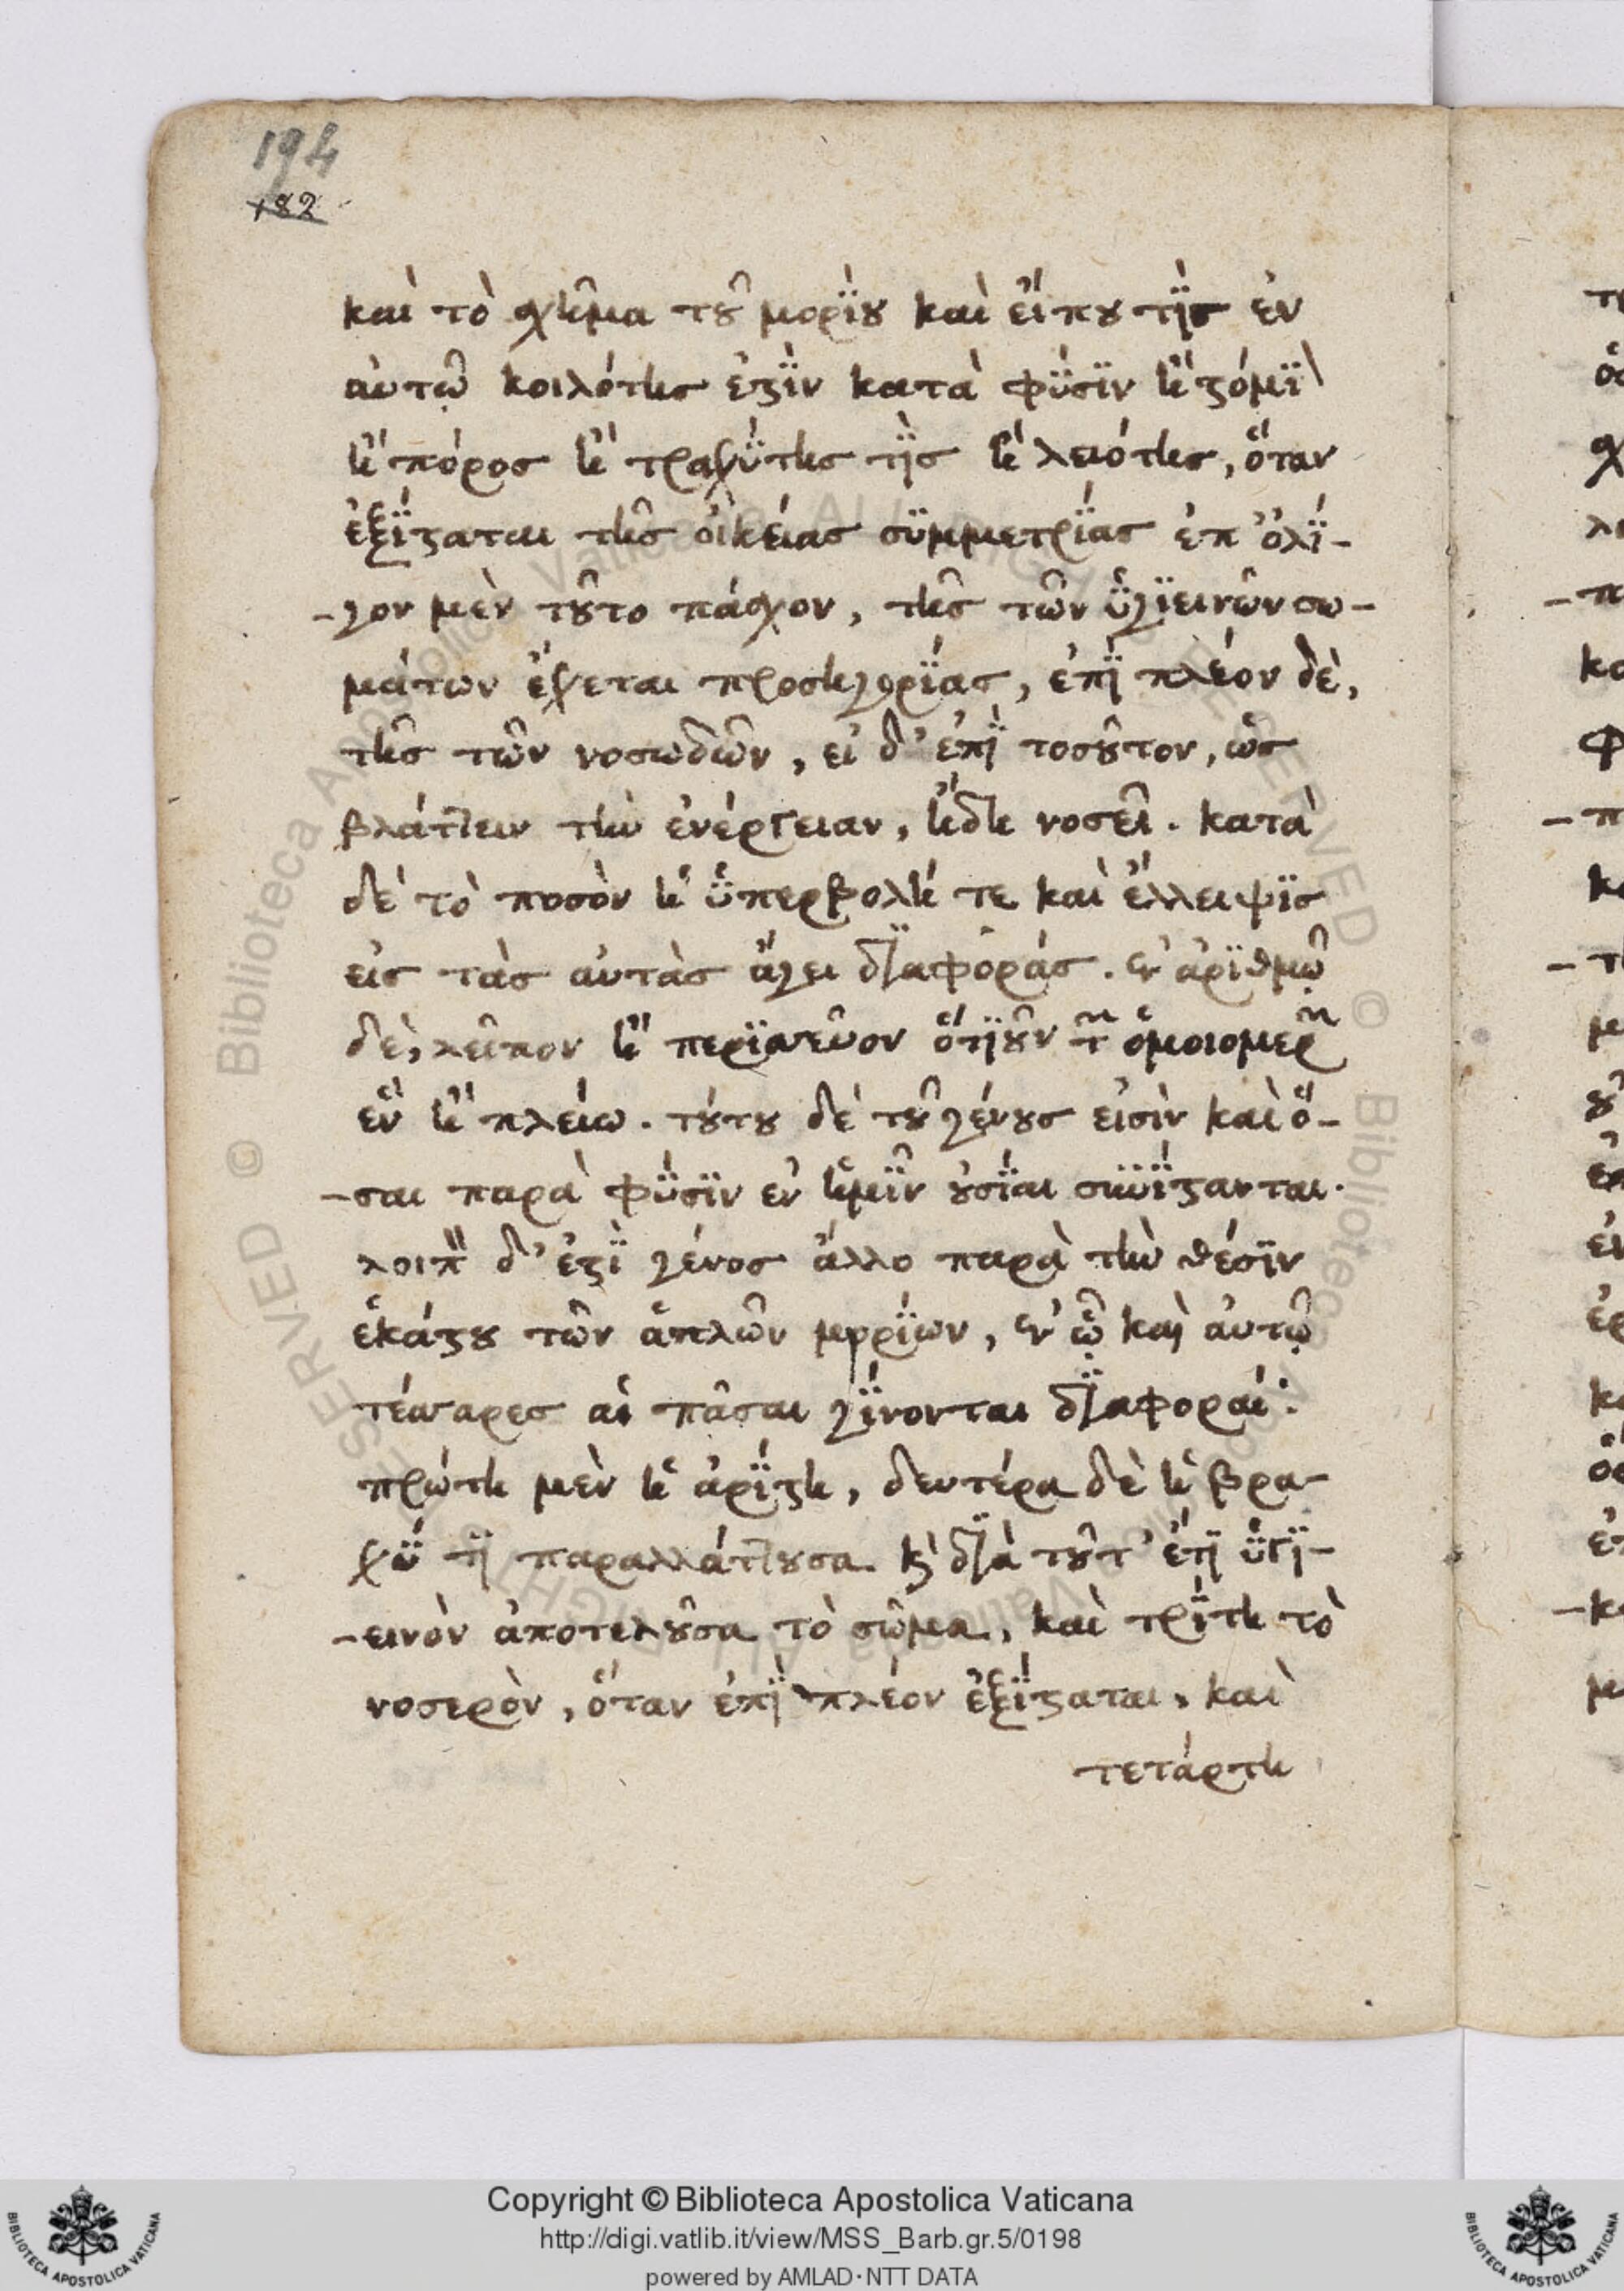 194
182
καὶ τὸ σχῆμα τοῦ μορΐου καὶ εἴπου τῒς ἐν
αὐτῷ κοιλότης ἐστῒν κατὰ φΰσϊν ἢ στόμϊ
ἢ πόρος ἢ τραχΰτης τῒς ἢ λειότης, ὅταν
ἐξΐσταται τῆς οἰκείας σϋμμετρΐας ἐπ' ὀλΐ-
-γον μὲν τοῦτο πάσχον, τῆς τῶν ὑγϊεινῶν σω-
μάτων ἔχεται προσηγορΐας, ἐπῒ πλέον δὲ,
τῆς τῶν νοσωδῶν, εἰ δ' ἐπῒ τοσοῦτον, ὡς
βλάπτειν τὴν ἐνέργειαν, ἤδη νοσεῖ. κατὰ
δὲ τὸ ποσὸν ἡ ὑπερβολή τε καὶ ἔλλειψϊς
εἰς τὰς αὐτὰς ἄγει δϊαφοράς. ἐν ἀρϊθμῷ
δὲ, λεῖπον ἢ περϊττεῦον ὁτϊοῦν τ̃ ὁμοιομερῶν
ἓν ἢ πλείω. τούτου δὲ τοῦ γένους εἰσὶν καὶ ὅ-
-σαι παρὰ φΰσϊν ἐν ἡμῖν οὐσΐαι σϋνΐστανται.
λοιπὸν δ' ἐστῒ γένος ἄλλο παρὰ τὴν θέσϊν
ἑκάστου τῶν ἁπλῶν μορΐων, ἐν ᾧ καὶ αὐτῷ
τέσσαρες αἱ πᾶσαι γΐνονται δϊαφοραί:
πρώτη μὲν ἡ ἀρΐστη, δευτέρα δὲ ἡ βρα-
χΰ τϊ παραλλάττουσα κ̀ δϊὰ τοῦτ' ἔτϊ ὑγϊ-
-εινὸν ἀποτελοῦσα τὸ σῶμα, καὶ τρΐτη τὸ
νοσερὸν, ὅταν ἐπῒ πλέον ἐξΐσταται, καὶ
τετάρτη
Copyright © Biblioteca Apostolica Vaticana
http://digi.vatlib.it/view/MSS_Barb.gr.5/0198
powered by AMLAD·NTT DATA